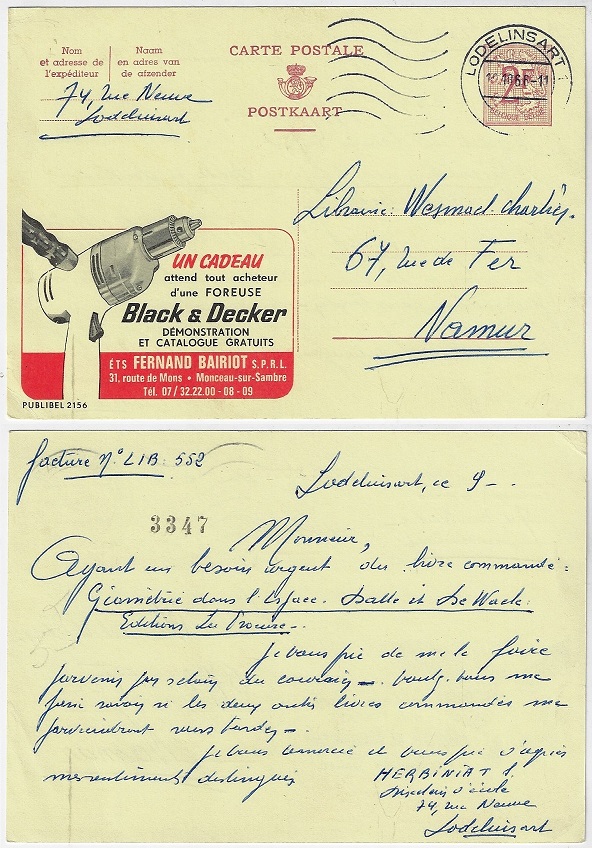 Nom
et adresse de
l'expéditeur
Naam
en adres van
de afzender
CARTE POSTALE
POSTKAART
LODELINSART
2F
74, rue Neuve
Lodelinsart
Librairie Wesmael-Charlier.
67, rue de Fer
Namur
UN CADEAU
attend tout acheteur
d'une FOREUSE
Black & Decker
DÉMONSTRATION
ET CATALOGUE GRATUITS
ÉTS FERNAND BAIRIOT S.P.R.L.
31, route de Mons • Monceau-sur-Sambre
Tél. 07/32.22.00 - 08 - 09
PUBLIBEL 2156
facture N° LIB : 552
Lodelinsart, ce 9 -
3347
Monsieur,
Ayant un besoin urgent du livre commandé :
Géométrie dans l'espace. Dalle et De Waele
Editions La Procure.
Je vous prie de me le faire
parvenir par retour du courrier - voulez-vous me
faire savoir si les deux autres livres commandés me
parviendront sans tarder -
Je vous remercie et vous prie d'agréer
mes sentiments distingués
HERBINIAT
Directeur d'école
74, rue Neuve
Lodelinsart